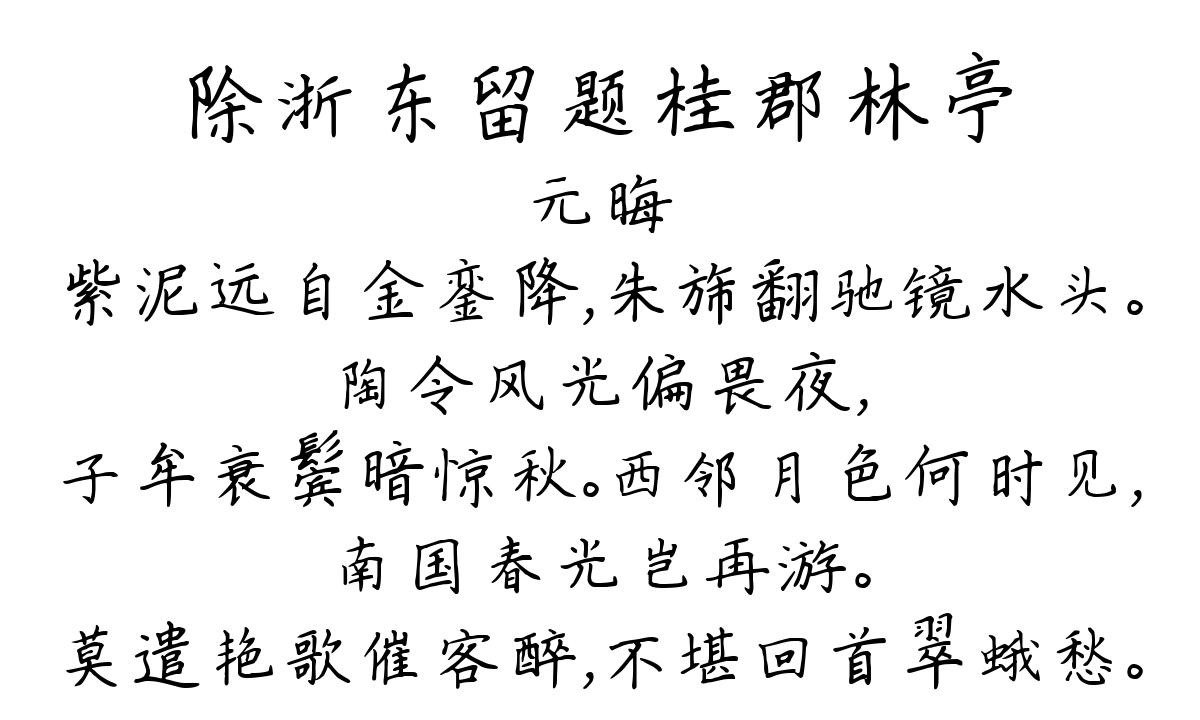 除浙东留题桂郡林亭
元晦
紫泥远自金銮降,朱旆翻驰镜水头。
陶令风光偏畏夜,
子牟衰鬓暗惊秋。西邻月色何时见,
南国春光岂再游。
莫遣艳歌催客醉,不堪回首翠蛾愁。